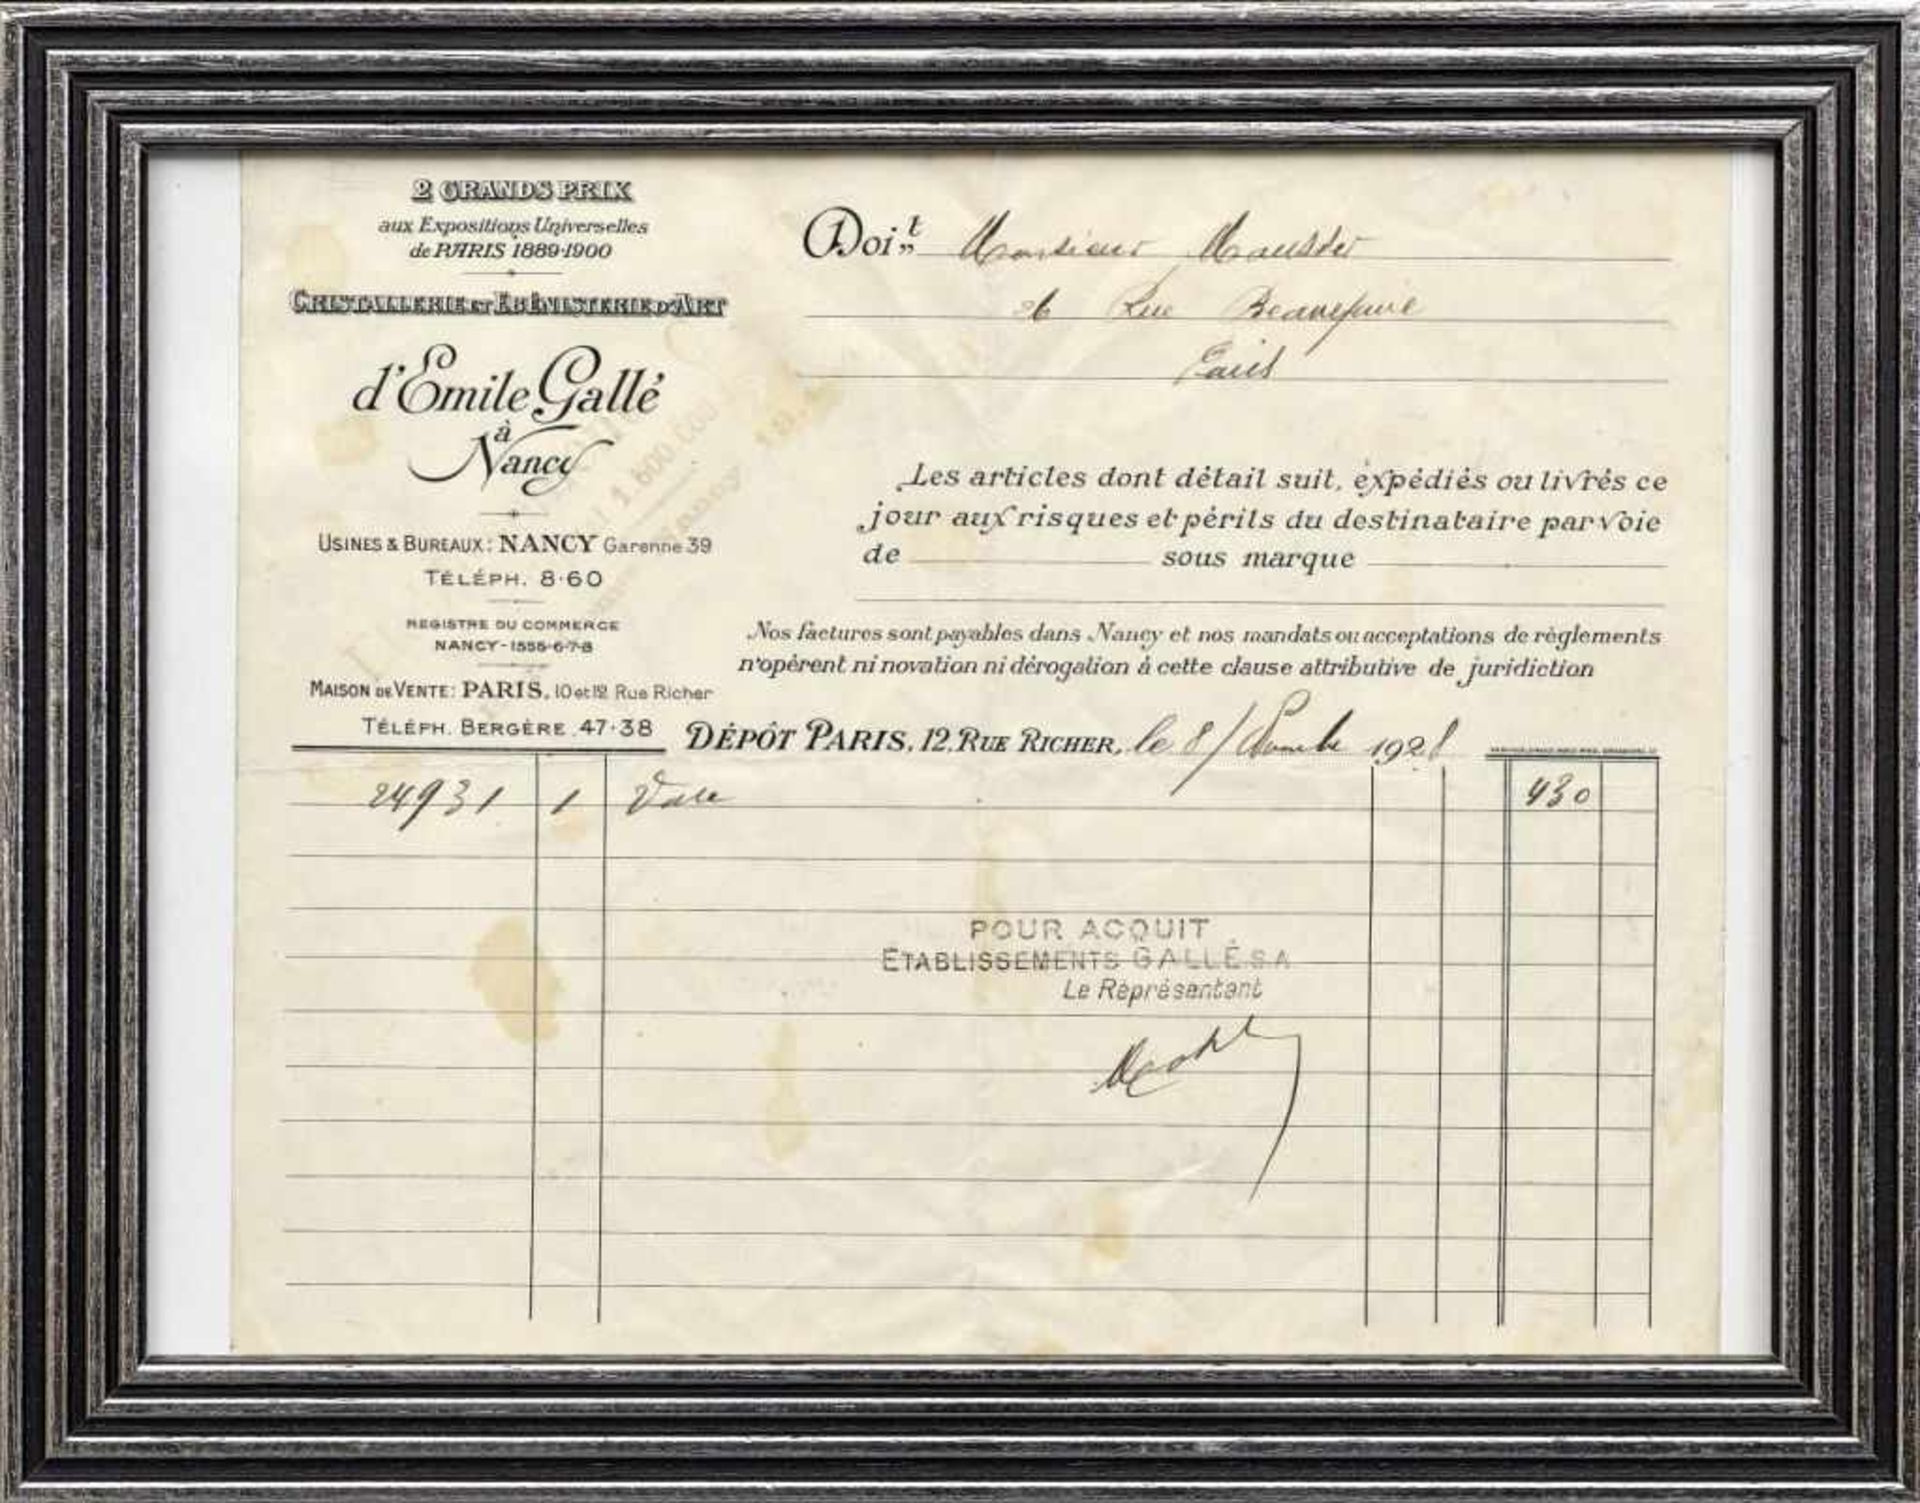 2 GRANDS PRIX
aux Expositions Universelles
de PARIS 1889-1900
CRISTALLERIE ET EBÉNISTERIE D'ART
d'Emile Gallé
à
Nancy
USINES & BUREAUX: NANCY Garenne 39
TÉLÉPH. 8·60
REGISTRE DU COMMERCE
NANCY-1555-6-7-8
MAISON DE VENTE: PARIS, 10 et 12 Rue Richer
TÉLÉPH. BERGÈRE 47·38
Doit Monsieur
26 Rue
Paris
Les articles dont détail suit, expédiés ou livrés ce
jour aux risques et périls du destinataire par voie
de sous marque
Nos factures sont payables dans Nancy et nos mandats ou acceptations de règlements
n'opérent ni novation ni dérogation à cette clause attributive de juridiction
DÉPÔT PARIS, 12, RUE RICHER, le 8/ 1928
24931 1 Vase 430
1.600.000
Nancy
POUR ACQUIT
ETABLISSEMENTS GALLÉ S.A
Le Représentant